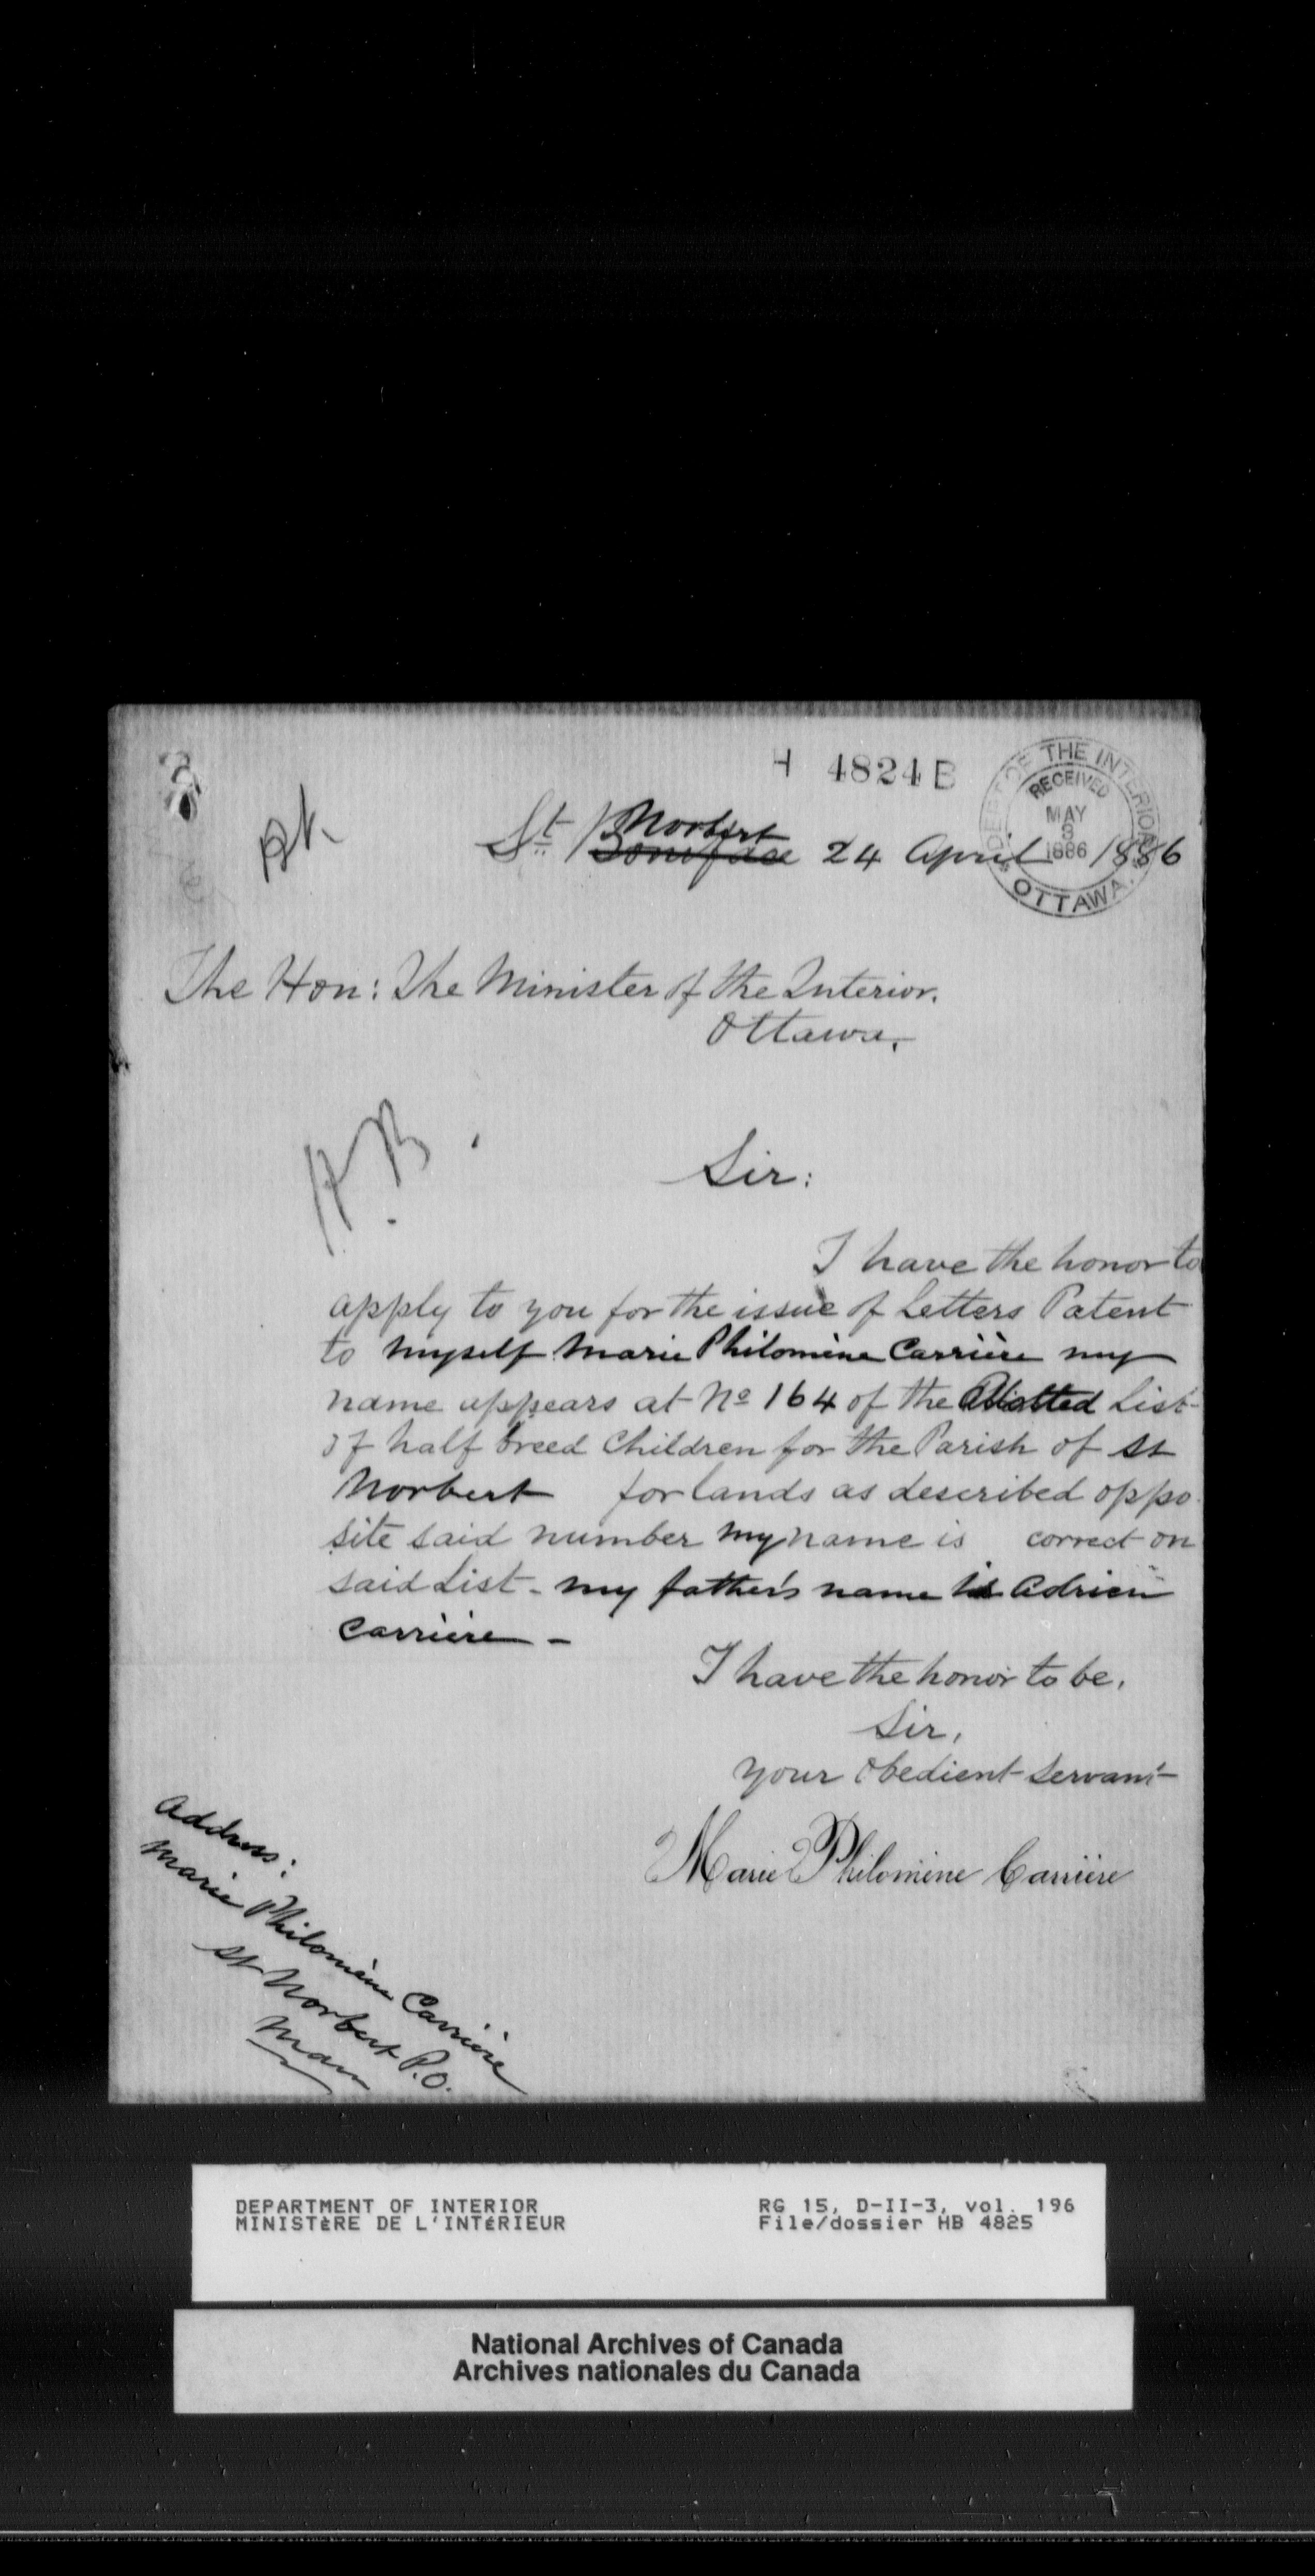 H 4824 B
DEPT OF THE INTERIOR
RECEIVED
MAY
3
1886
OTTAWA.
Norbert
St Boniface 24 April 1886
The Hon: The Minister of the Interior.
Ottawa.
H B.
Sir:
I have the honor to
apply to you for the issue of Letters Patent
to myself Marie Philomène Carrière my
name appears at No 164 of the Allotted List
of half breed Children for the Parish of St
Norbert for lands as described oppo
site said number my name is correct on
said List - my father's name is Adrien
Carrière -
I have the honor to be,
Sir,
your obedient servant
Marie Philomène Carrière
Address:
Marie Philomène Carrière
St Norbert P.O.
Man
DEPARTMENT OF INTERIOR
MINISTÈRE DE L'INTÉRIEUR
RG 15, D-II-3, vol. 196
File/dossier HB 4825
National Archives of Canada
Archives nationales du Canada